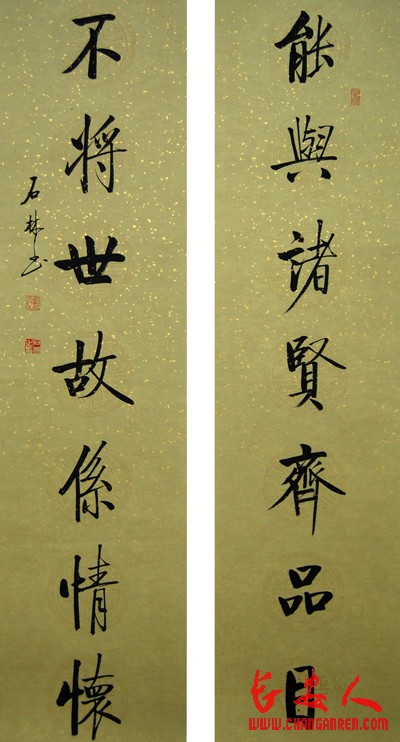 能與諸賢齊品目
不將世故係情懷
石林书
长安人
WWW.CHANGANREN.COM